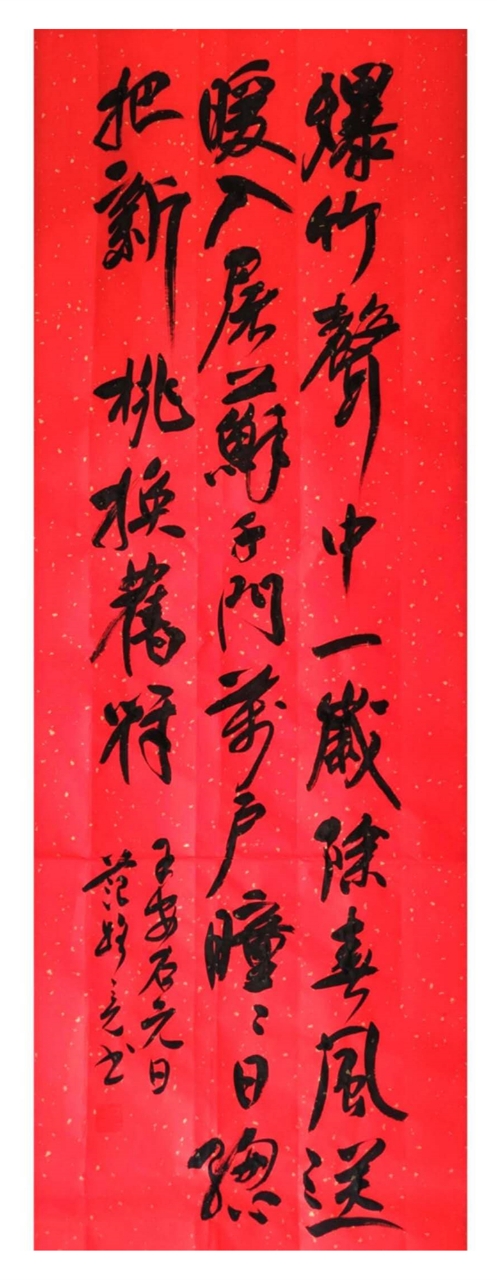 爆竹聲中一歲除春風送
暖入屠蘇千門萬戶曈々日總
把新桃換舊符
王安石元日
范亮书